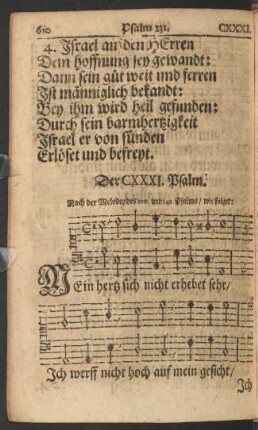 610 Psalm CXXXI.
4. Israel an den HErren
Dein hoffnung sey gewandt:
Dann sein güt weit und ferren
Ist männiglich bekandt:
Bey ihm wird heil gefunden:
Durch sein barmhertzigkeit
Israel er von sünden
Erlöset und befreyt.
Der CXXXI. Psalm.
Nach der Melodey des 100. und 142 Psalms / wie folget:
MEin hertz sich nicht erhebet sehr /
Ich werff nicht hoch auf mein gesicht /
Ich